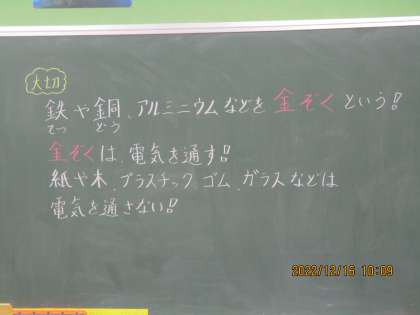 大切
鉄や銅、アルミニウムなどを金ぞくという!!
てつ どう
金ぞくは、電気を通す!!
紙や木、プラスチック、ゴム、ガラスなどは
電気を通さない!!
2022/12/15 10:09